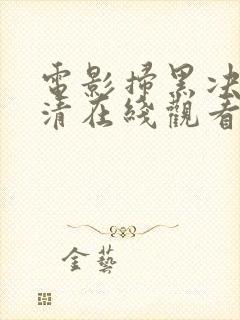 電影掃黑決
清在綫觀看
金藝